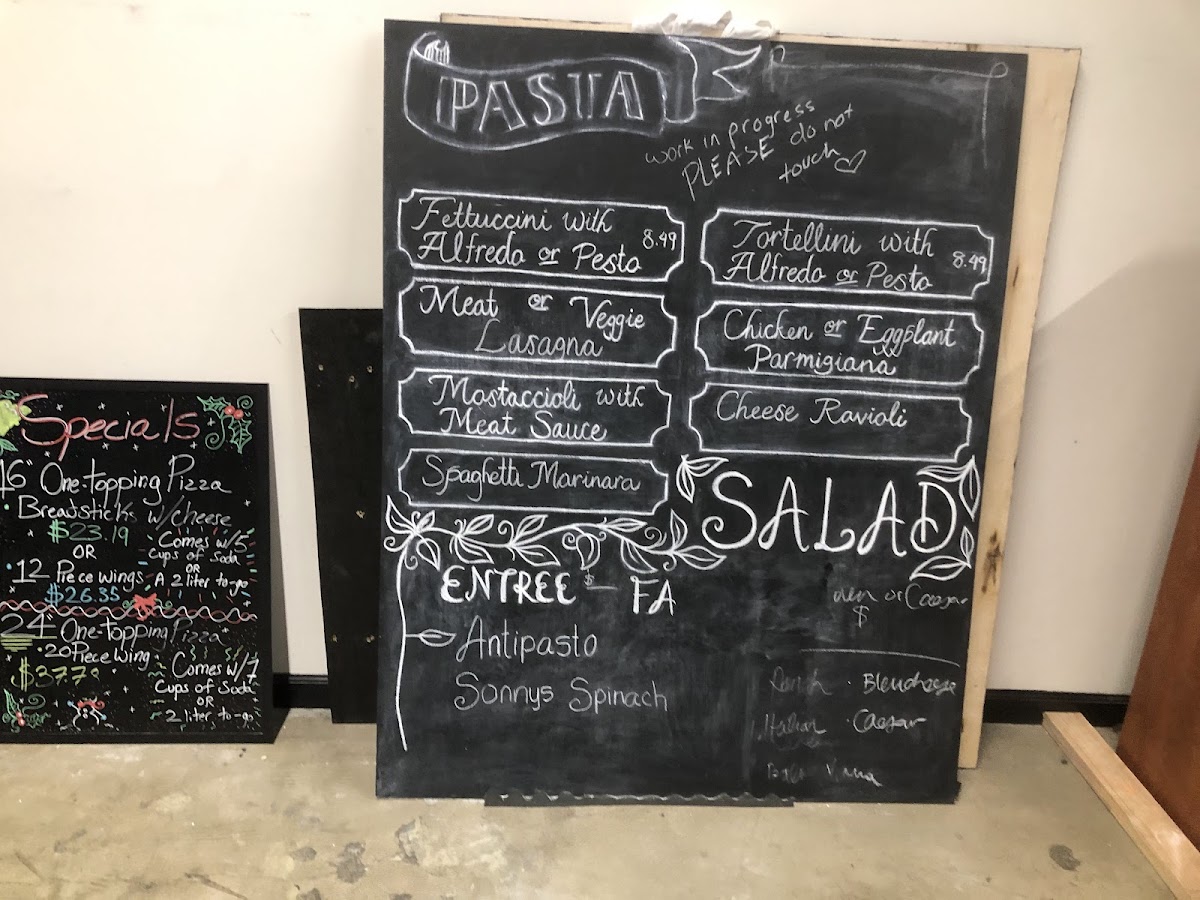 PASTA
work in progress
PLEASE do not
touch
Fettuccini with
Alfredo or Pesto 8.49
Tortellini with
Alfredo or Pesto 8.49
Meat or Veggie
Lasagna
Chicken or Eggplant
Parmigiana
Mostaccioli with
Meat Sauce
Cheese Ravioli
Spaghetti Marinara
SALAD
ENTREE $ — FA
or Caesar
$
Antipasto
Sonnys Spinach
Ranch · Bleucheese
Italian · Caesar
Specials
16" One-topping Pizza
· Breadsticks w/cheese
$23.19
OR
· 12 Piece wings
$26.35
Comes w/5
Cups of Soda
OR
A 2 liter to-go
24" One-topping Pizza
· 20 Piece Wing
Comes w/7
Cups of Soda
OR
2 liter to-go